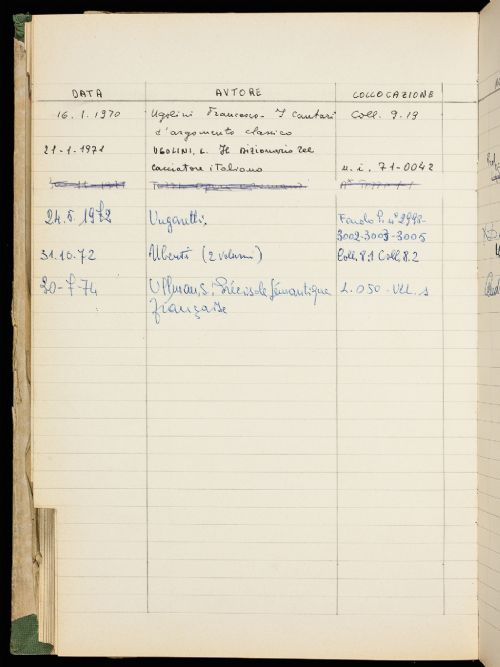 DATA AVTORE COLLOCAZIONE
16.1.1970 Ugolini Francesco - I Cantari Coll. 9.19
d'argomento classico
21-1-1971 UGOLINI, L. Il Dizionario del
cacciatore italiano n.i. 71-0042
24.5.1972 Ungaretti. Fondo P. n° 2998-
3002-3003-3005
31.10.72 Uberti (2 volumi) Coll. 8.1 Coll. 8.2
30-7-74 Ullmann S., Précis de sémantique L.050.ULL.1
française